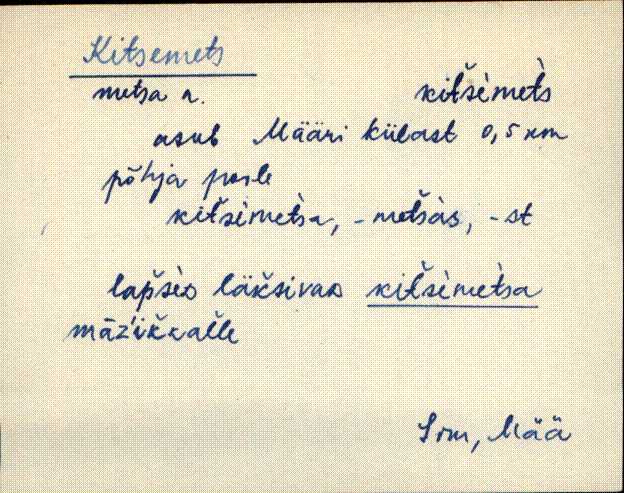 Kitsemets
metsa n. kitšèmets̀
asub Määri külast 0,5 km
põhja pool
kitsèmets̀a, -metsàs, -st
lapsèD läksivaD kitsèmets̀a
māz'ikkalle
Sim, Mää